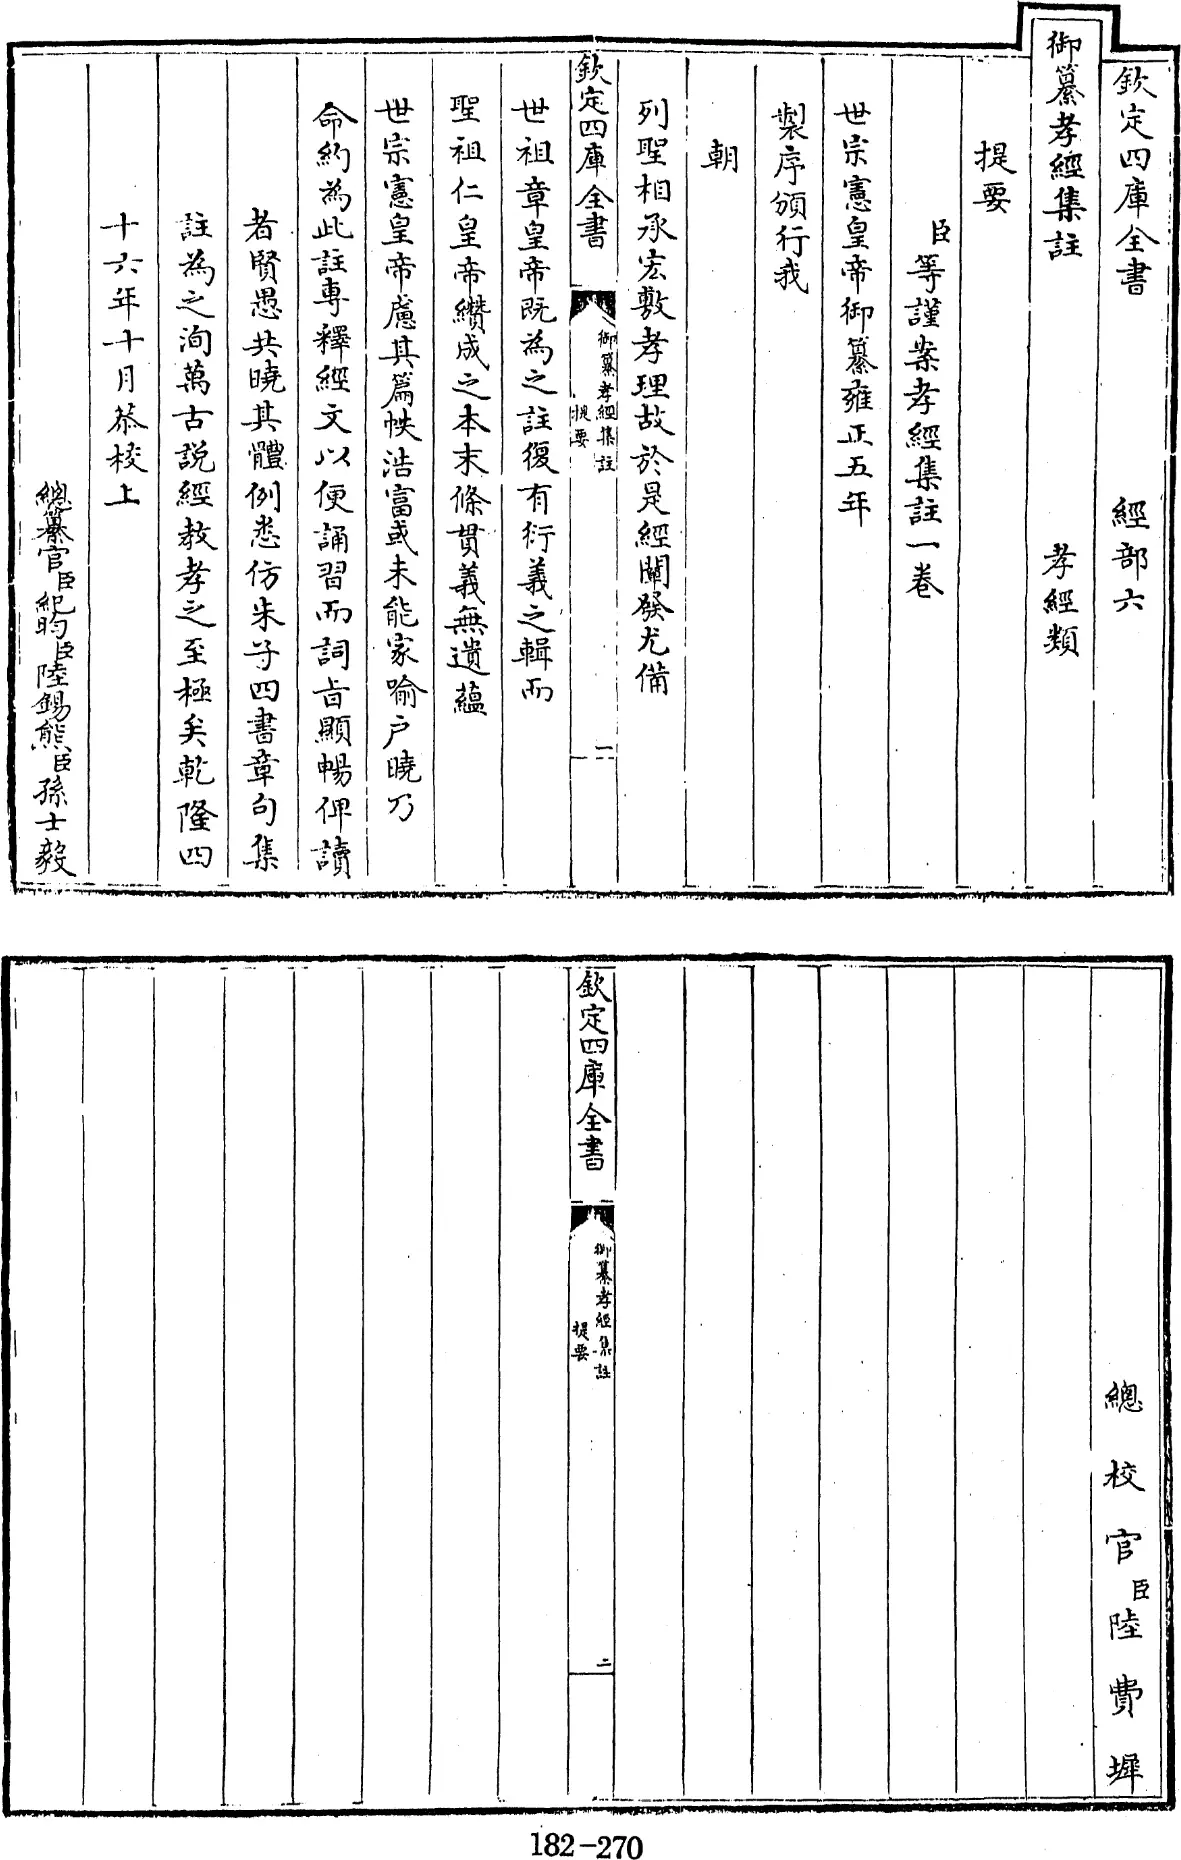 欽定四庫全書 經部六
御纂孝經集註 孝經類
提要
臣等謹案孝經集註一卷
世宗憲皇帝御纂雍正五年
製序頒行我
朝
列聖相承宏敷孝理故於是經闡發尤備
欽定四庫全書
御纂孝經集註
提要
一
世祖章皇帝既為之註復有衍義之輯而
聖祖仁皇帝纘成之本末條貫義無遺蘊
世宗憲皇帝慮其篇帙浩富或未能家喻户曉乃
命約為此註專釋經文以便誦習而詞旨顯暢俾讀
者賢愚共曉其體例悉仿朱子四書章句集
註為之洵萬古説經教孝之至極矣乾隆四
十六年十月恭校上
總纂官臣紀昀臣陸錫熊臣孫士毅
總校官臣陸費墀
欽定四庫全書
御纂孝經集註
提要
二
182-270